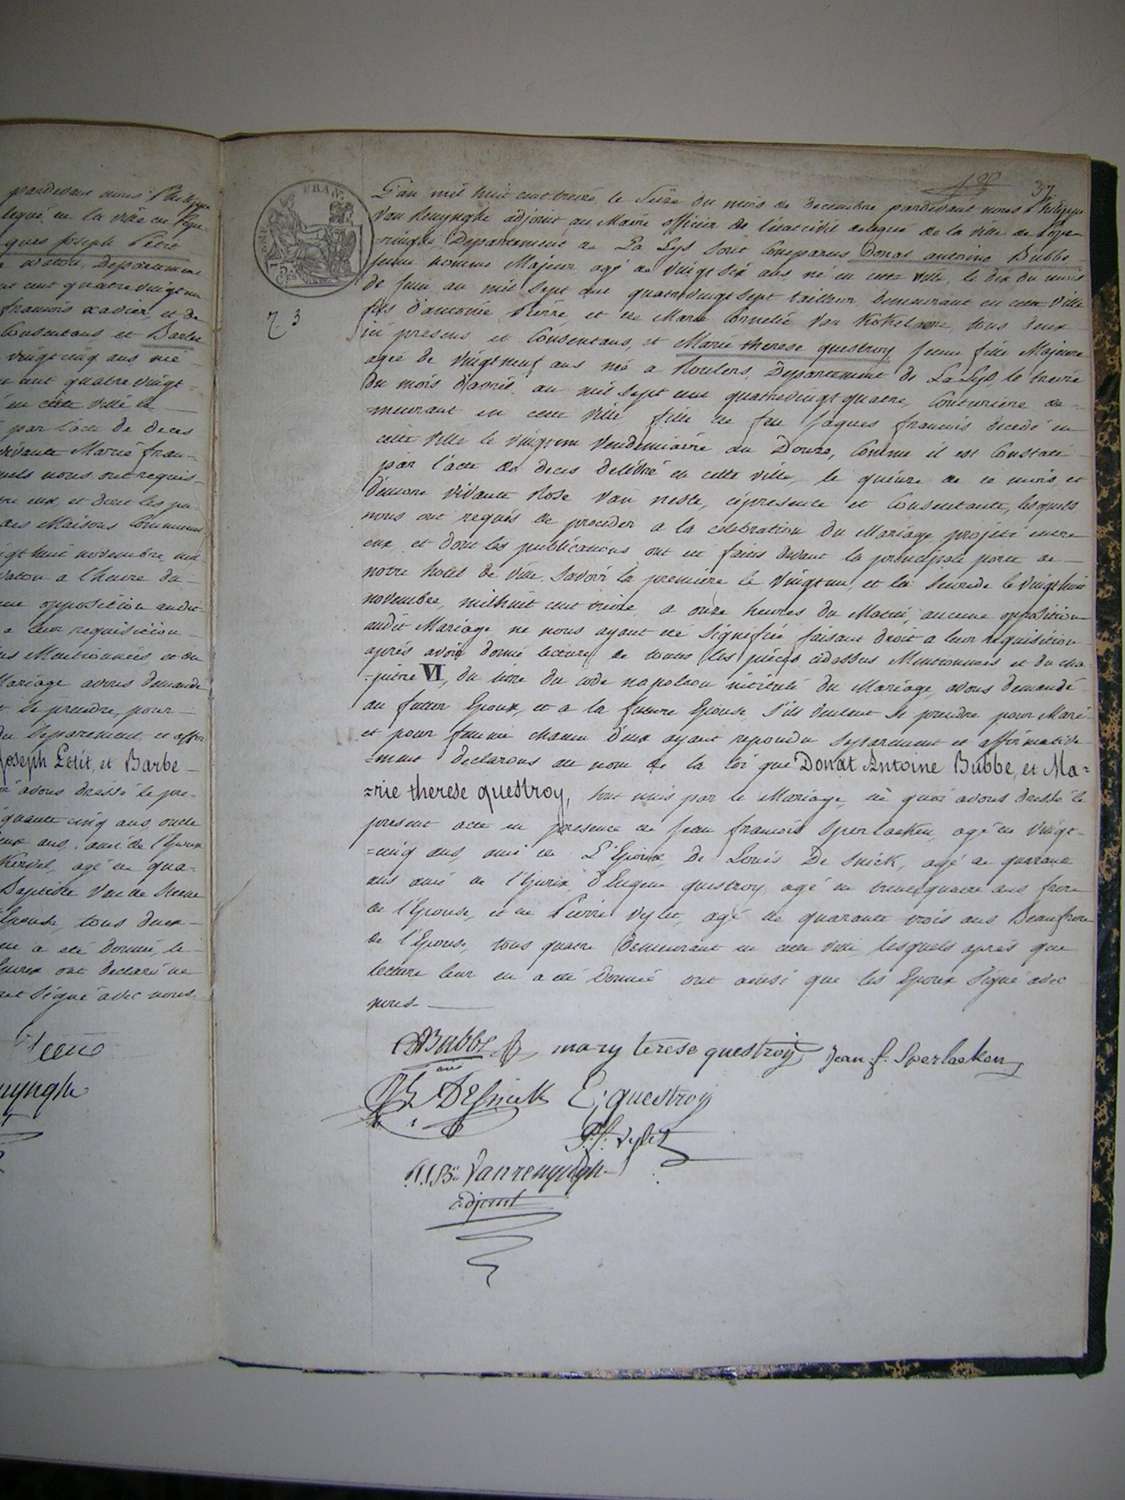 pardevant nous Philippe
ques Joseph Petit
francois xavier et de
Consentans et Barbe
vingt cinq ans née
en cette ville le
par l'acte de deces
vivante Marie fran-
uels nous ont requis
des Maisons Communes
ingt huit novembre mil
a l'heure du
opposition audit
a leur requisition
Mentionnées et du
Mariage avons demandé
se prendre, pour
Separement et affir
Joseph Petit, et Barbe-
avons dressé le pre-
quante cinq ans, oncle
ans, ami de l'Epoux
agé de qua-
Baptiste Van de
Epouse, tous deux
a été donnée, le
Epoux ont declaré ne
signé avec nous.
37
L'an mil huit cent treize, le Seize du mois de decembre pardevant nous Philippe
Van Renynghe adjoint au Maire officier de l'etat civil delegué de la ville de Ypre
Departement de La Lys sont Comparus Donat antoine Bubbe
jeune homme Majeur agé de vingt six ans né en cette ville, le dix du mois
de Juin au mil sept cent quatrevingt sept tailleur demeurant en cette ville
73
fils d'antoine Pierre et de Marie Cornelie Van tous deux
ici presens et Consentans, et Marie therese questroy Jeune fille Majeure
agée de vingtneuf ans née a Roulers, Departement de La Lys, le treize
du mois d'avril au mil sept cent quatrevingt quatre, Couturiere de-
-meurant en cette ville fille de feu Jaques francois decedé en
cette ville le vingt un Vendemiaire an Douze, Comme il est Constaté
par l'acte de deces delivré en cette ville, le quinze de ce mois et
d'encore vivante Rose Van neste, ci presente et Consentante, lesquels
nous ont requis de proceder a la celebration du Mariage projeté entre
eux et dont les publications ont été faites devant la principale porte de
notre hotel de ville, Savoir la premiere le vingt un, et la seconde le vingt huit
novembre, mil huit cent treize a onze heures du Matin, aucune opposition
audit Mariage ne nous ayant été Signifiée faisant droit a leur requisition
après avoir donné lecture de toutes les pièces cidessus Mentionnées et du cha-
-pitre VI, du livre du code napoleon intitulé du Mariage, avons demandé
au futur Epoux, et a la future Epouse, s'ils veulent se prendre pour Mari
et pour femme chacun d'eux ayant repondu separement et affirmative
-ment declarons au nom de la loi que Donat Antoine Bubbe, et Ma-
-rie therese questroy, sont unis par le Mariage, de quoi avons dressé le
present acte en presence de Jean francois Sperlaeken, agé de vingt-
-cinq ans, ami de L'Epoux, de Louis De Snick, agé de quarante
ans ami de l'Epoux, d'Eugene questroy, agé de trente quatre ans frere
de l'Epouse, et de Pierre Vylet, agé de quarante trois ans Beaufrere
de l'Epouse, tous quatre demeurant en cette ville lesquels après que
lecture leur en a été donnée ont ainsi que les Epoux signé avec
nous
Bubbe mary terese questroy Jean f. Sperlaeken
L DeSnick E; questroy
P.J. vylet
Vanrenynghe
adjoint